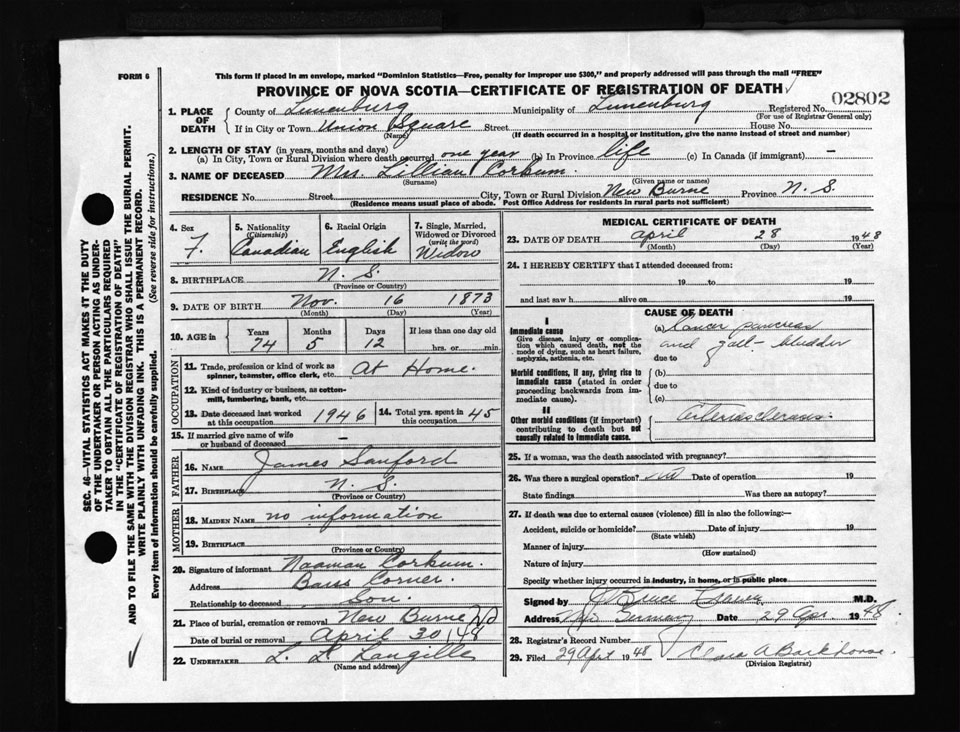 FORM 6
This form if placed in an envelope, marked "Dominion Statistics—Free, penalty for improper use $300," and properly addressed will pass through the mail "FREE"
PROVINCE OF NOVA SCOTIA—CERTIFICATE OF REGISTRATION OF DEATH
02802
1. PLACE OF DEATH
County of Lunenburg Municipality of Lunenburg Registered No.
(For use of Registrar General only)
If in City or Town Union Square Street House No.
(Name) (If death occurred in a hospital or institution, give the name instead of street and number)
2. LENGTH OF STAY (in years, months and days)
(a) In City, Town or Rural Division where death occurred one year (b) In Province life (c) In Canada (if immigrant) —
3. NAME OF DECEASED Mrs. Lillian Corkum.
(Surname) (Given name or names)
RESIDENCE No. Street City, Town or Rural Division New Burne Province N. S.
(Residence means usual place of abode. Post Office Address for residents in rural parts not sufficient)
4. Sex
F.
5. Nationality (Citizenship)
Canadian
6. Racial Origin
English
7. Single, Married, Widowed or Divorced (write the word)
Widow
8. BIRTHPLACE N. S.
(Province or Country)
9. DATE OF BIRTH Nov. 16 1873
(Month) (Day) (Year)
10. AGE in
Years Months Days If less than one day old
74 5 12 hrs. or min.
OCCUPATION
11. Trade, profession or kind of work as spinner, teamster, office clerk, etc. At Home.
12. Kind of industry or business, as cotton-mill, lumbering, bank, etc.
13. Date deceased last worked at this occupation 1946
14. Total yrs. spent in this occupation 45
15. If married give name of wife or husband of deceased —
FATHER
16. NAME James Sanford
17. BIRTHPLACE N. S.
(Province or Country)
MOTHER
18. MAIDEN NAME no information
19. BIRTHPLACE
(Province or Country)
20. Signature of informant Naaman Corkum.
Address Barss Corner.
Relationship to deceased Son.
21. Place of burial, cremation or removal New Burne
Date of burial or removal April 30/48
22. UNDERTAKER L. L. Langille
(Name and address)
MEDICAL CERTIFICATE OF DEATH
23. DATE OF DEATH April 28 1948
(Month) (Day) (Year)
24. I HEREBY CERTIFY that I attended deceased from:
19 to 19
and last saw h alive on 19
CAUSE OF DEATH
I
Immediate cause
Give disease, injury or complication which caused death, not the mode of dying, such as heart failure, asphyxia, asthenia, etc.
(a) Cancer pancreas
and gall-bladder
due to
Morbid conditions, if any, giving rise to immediate cause (stated in order proceeding backwards from immediate cause).
(b)
due to
(c)
II
Other morbid conditions (if important) contributing to death but not causally related to immediate cause.
Arteriosclerosis.
25. If a woman, was the death associated with pregnancy?
26. Was there a surgical operation? no Date of operation 19
State findings Was there an autopsy?
27. If death was due to external causes (violence) fill in also the following:—
Accident, suicide or homicide? Date of injury 19
(State which)
Manner of injury
(How sustained)
Nature of injury
Specify whether injury occurred in industry, in home, or in public place
Signed by Bruce M.D.
Address Date 29 Apr. 1948.
28. Registrar's Record Number
29. Filed 29 Apr 1948 Clara A Barkhouse.
(Division Registrar)
SEC. 46—VITAL STATISTICS ACT MAKES IT THE DUTY
OF THE UNDERTAKER OR PERSON ACTING AS UNDER-
TAKER TO OBTAIN ALL THE PARTICULARS REQUIRED
IN THE "CERTIFICATE OF REGISTRATION OF DEATH"
AND TO FILE THE SAME WITH THE DIVISION REGISTRAR WHO SHALL ISSUE THE BURIAL PERMIT.
WRITE PLAINLY WITH UNFADING INK. THIS IS A PERMANENT RECORD.
Every item of information should be carefully supplied. (See reverse side for instructions.)